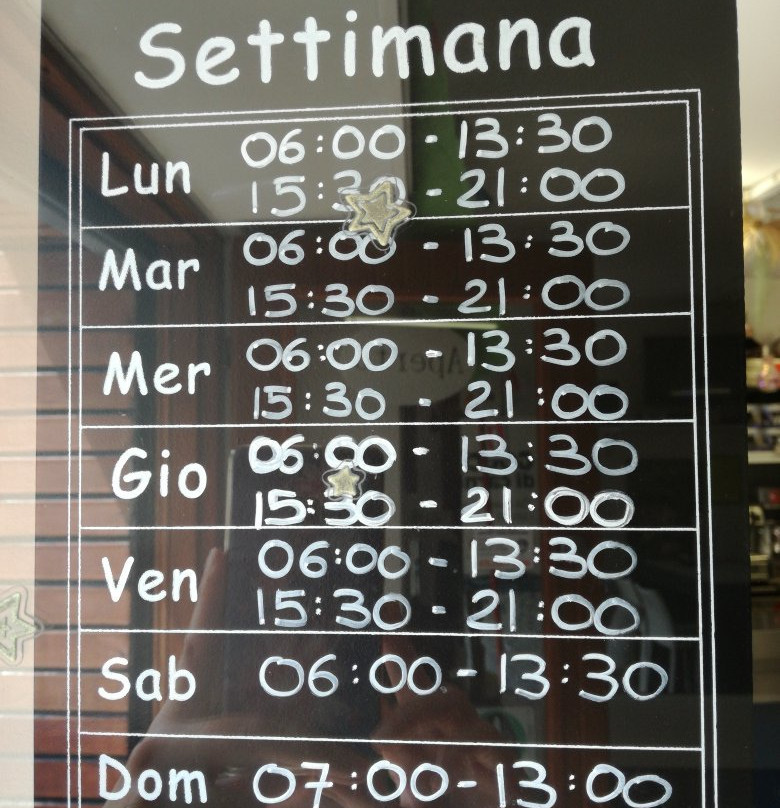 Settimana
Lun 06:00 - 13:30
15:30 - 21:00
Mar 06:00 - 13:30
15:30 - 21:00
Mer 06:00 - 13:30
15:30 - 21:00
Gio 06:00 - 13:30
15:30 - 21:00
Ven 06:00 - 13:30
15:30 - 21:00
Sab 06:00 - 13:30
Dom 07:00 - 13:00